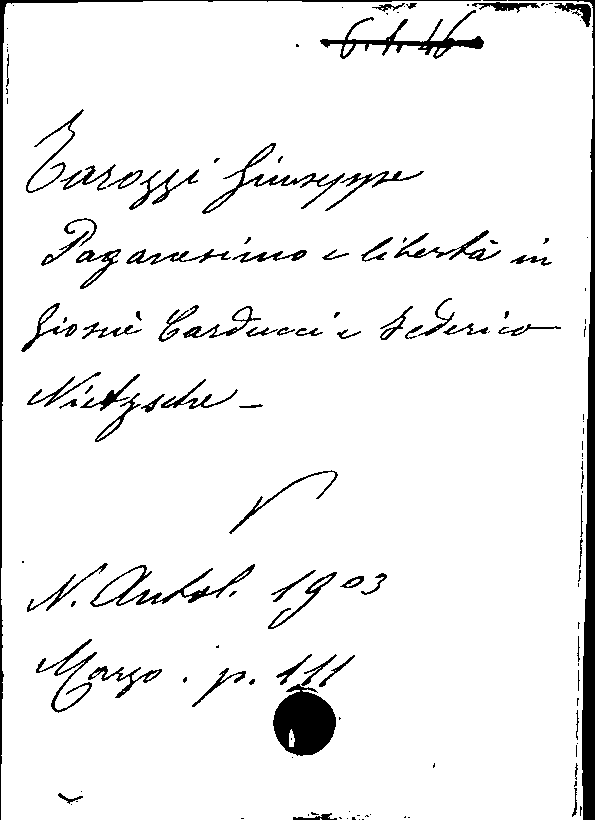 6.1.46
Tarozzi Giuseppe
Paganesimo e libertà in
Giosuè Carducci e Federico
Nietzsche –
N. Antol. 1903
Marzo . p. 111